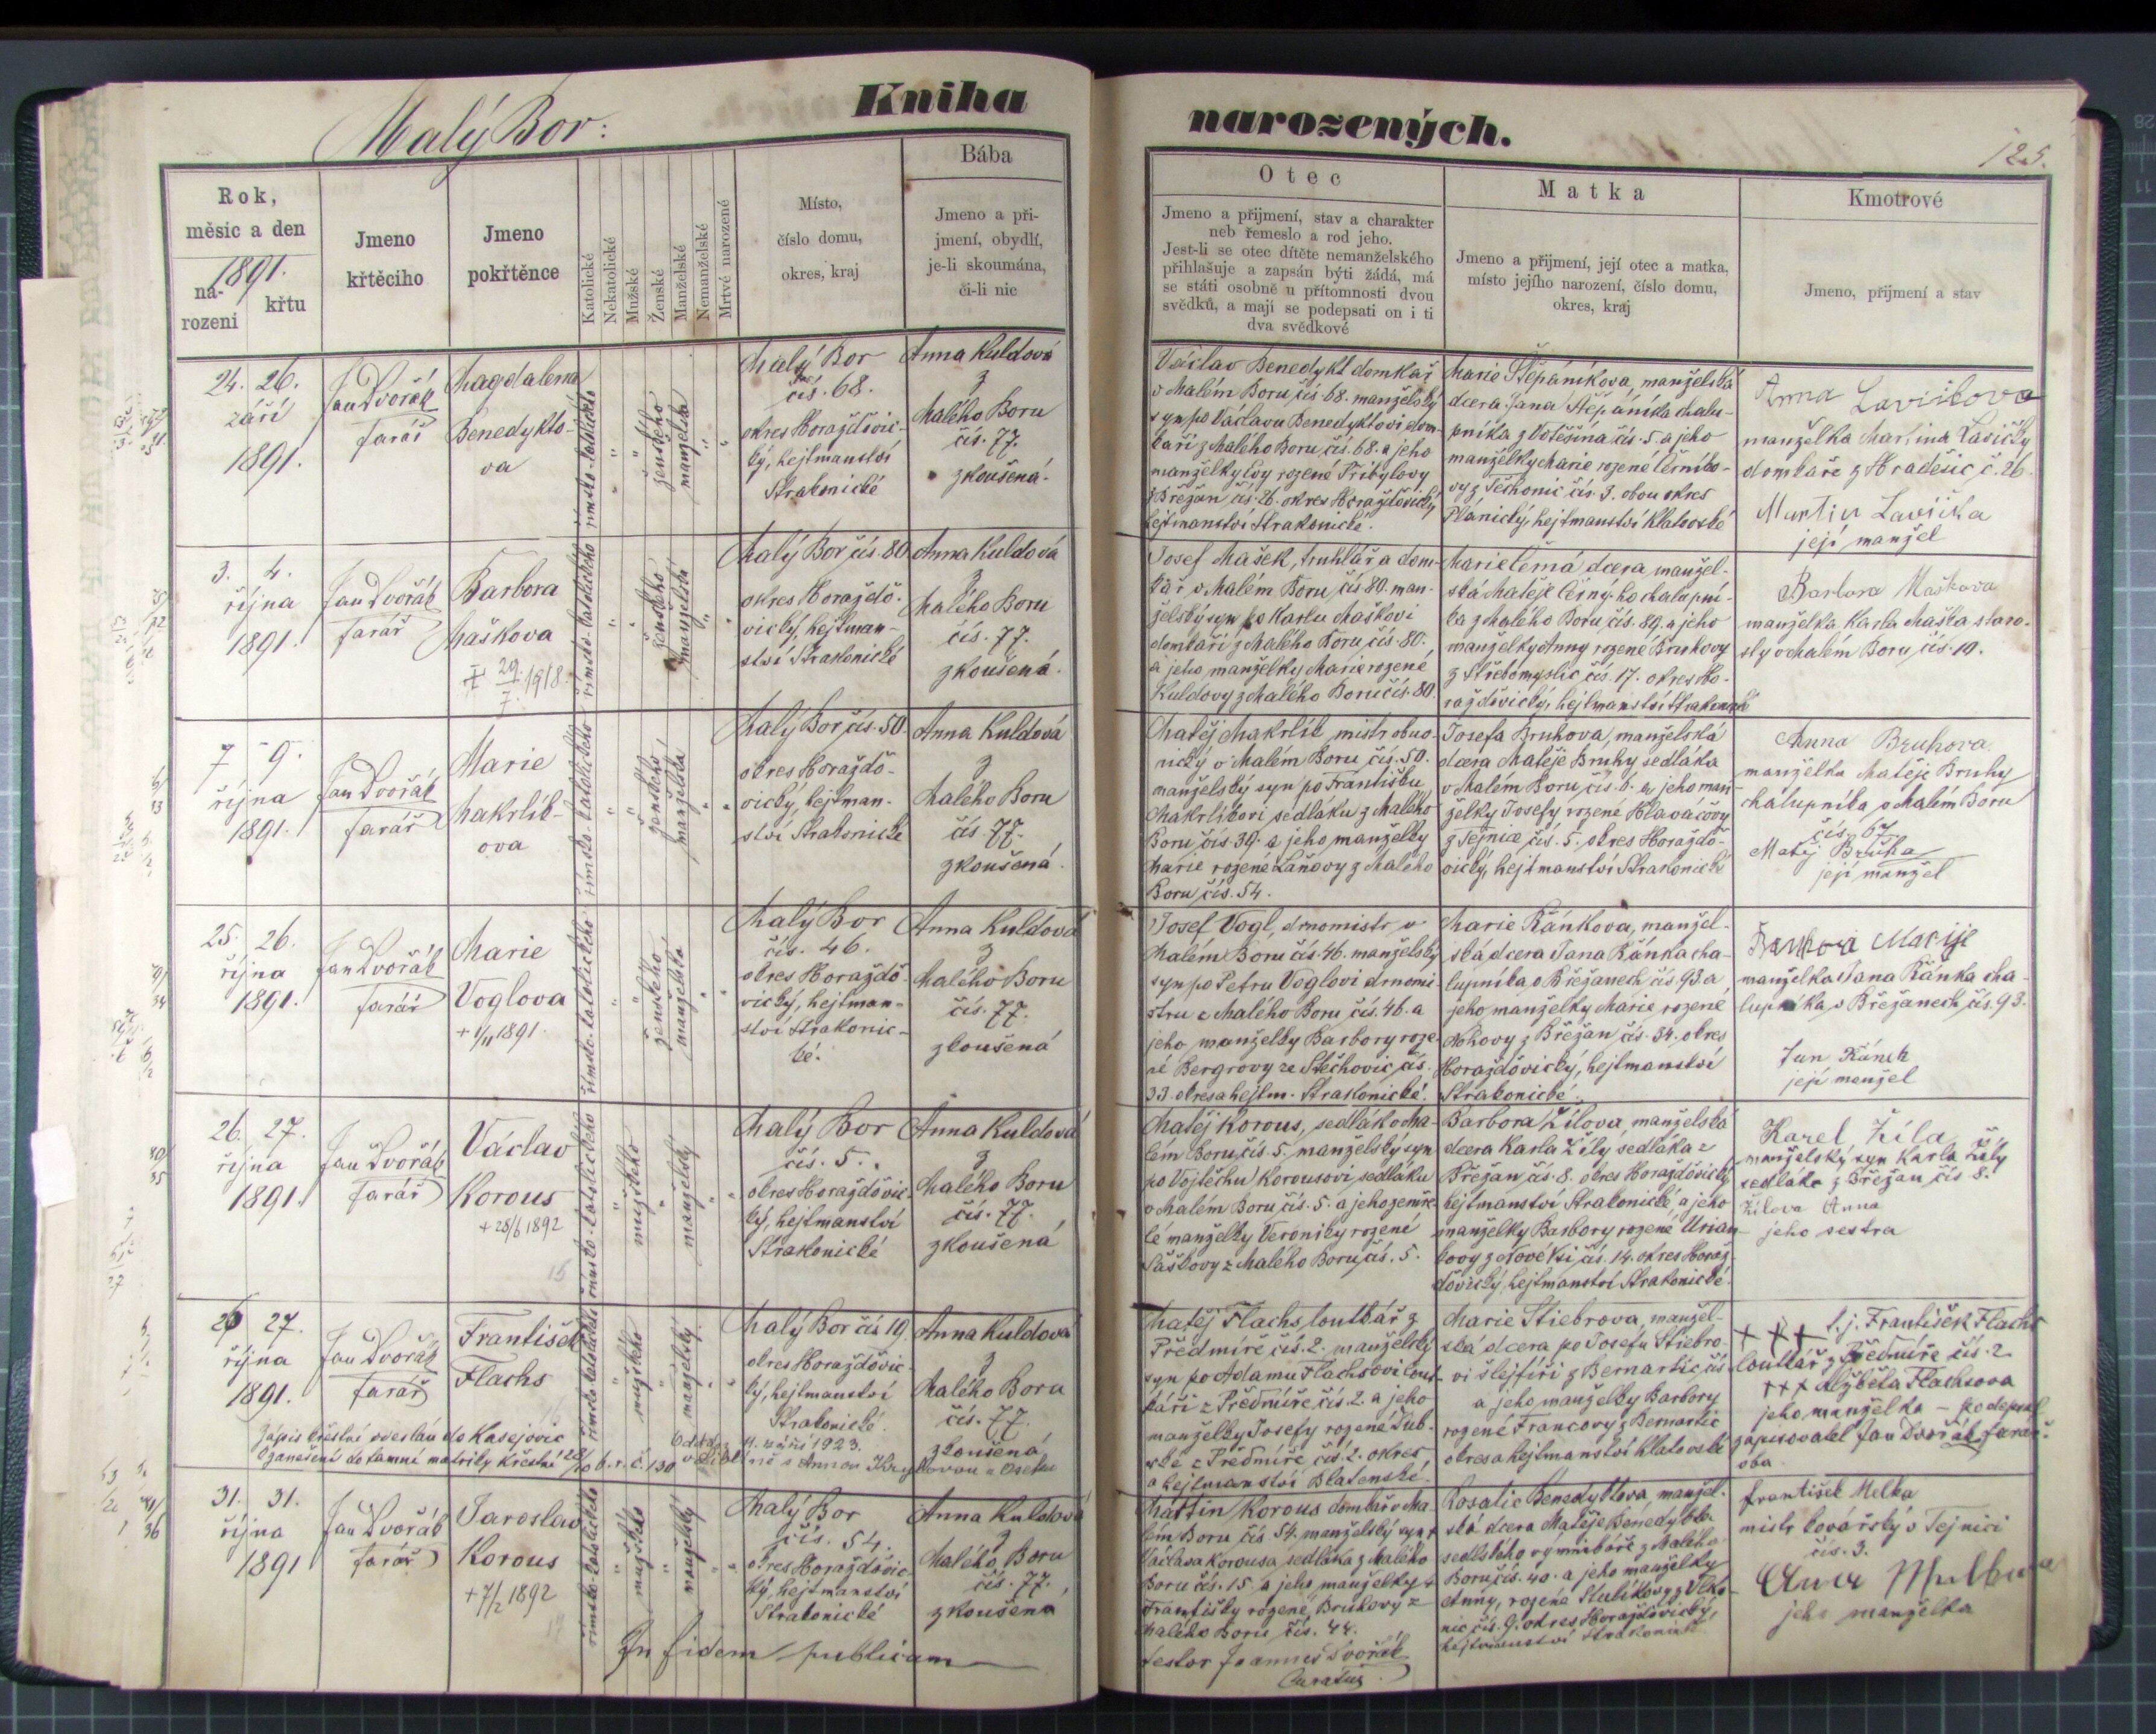 Malý Bor:
Kniha
narozených.
125.
Rok,
měsíc a den
1891.
na-
rozeni
křtu
Jmeno
křtěciho
Jmeno
pokřtěnce
Katolické
Nekatolické
Mužské
Ženské
Manželské
Nemanželské
Mrtvé narozené
Místo,
číslo domu,
okres, kraj
Bába
Jmeno a při-
jmení, obydlí,
je-li skoumána,
či-li nic
Otec
Jmeno a přijmení, stav a charakter
neb řemeslo a rod jeho.
Jest-li se otec dítěte nemanželského
přihlašuje a zapsán býti žádá, má
se státi osobně u přítomnosti dvou
svědků, a mají se podepsati on i ti
dva svědkové
Matka
Jmeno a přijmení, její otec a matka,
místo jejího narození, číslo domu,
okres, kraj
Kmotrové
Jmeno, přijmení a stav
24. 26.
září
1891.
Jan Dvořák
farář
Magdalena
Benedykto-
va
římsko-katolického
ženského
manželská
Malý Bor
čís. 68.
okres Horažďovic-
ký, hejtmanství
Strakonické
Anna Kuldová
z
Malého Boru
čís. 77.
zkoušená.
Václav Benedykt domkař
v Malém Boru čís. 68. manželský
syn po Václavu Benedyktovi dom-
káři z Malého Boru čís. 68. a jeho
manželky Evy rozené Přibylovy
z Břežan čís. 26. okres Horažďovický
hejtmanství Strakonické.
Marie Štěpánkova, manželská
dcera Jana Štěpánka chalu-
pníka z čís. 5. a jeho
manželky Marie rozené Černého-
vy z Těchonic čís. 3. obou okres
Plánický, hejtmanství Klatovské
Anna Lavičkova
manželka Martina Lavičky
domkáře z Hradešic č. 26.
Martin Lavička
její manžel
3. 4.
října
1891.
Jan Dvořák
farář
Barbora
Maškova
29. 7. 1918.
římsko-katolického
ženského
manželská
Malý Bor čís. 80.
okres Horažďo-
vický, hejtman-
ství Strakonické
Anna Kuldová
z
Malého Boru
čís. 77.
zkoušená.
Josef Mašek, truhlář a dom-
kář v Malém Boru čís. 80. man-
želský syn po Karlu Maškovi
domkáři z Malého Boru čís. 80.
a jeho manželky Marie rozené
Kuldovy z Malého Boru čís. 80.
Marie Černá dcera manžel-
ská Matěje Černýho chalupní-
ka z Malého Boru čís. 89. a jeho
manželky Anny rozené Bruhovy
z Střebomyslic čís. 17. okres Ho-
ražďovický, hejtmanství Strakonické
Barbora Maškova
manželka Karla Maška staro-
sty v Malém Boru čís. 10.
7 9.
října
1891.
Jan Dvořák
farář
Marie
Makrlík-
ova
římsko-katolického
ženského
manželská
Malý Bor čís. 50.
okres Horažďo-
vický, hejtman-
ství Strakonické
Anna Kuldová
z
Malého Boru
čís. 77.
zkoušená.
Matěj Makrlík, mistr obuv-
nický v Malém Boru čís. 50.
manželský syn po Františku
Makrlíkovi sedláku z Malého
Boru čís. 39. a jeho manželky
Marie rozené Laňovy z Malého
Boru čís. 54.
Josefa Bruhova, manželská
dcera Matěje Bruhy sedláka
v Malém Boru čís. 6. a jeho man-
želky Josefy rozené Hlaváčovy
z Tejnice čís. 5. okres Horažďo-
vický, hejtmanství Strakonické
Anna Bruhova
manželka Matěje Bruhy
chalupníka v Malém Boru
čís. 67.
Matěj Bruha
její manžel
25. 26.
října
1891.
Jan Dvořák
farář
Marie
Voglova
+ 1/11 1891.
římsko-katolického
ženského
manželská
Malý Bor
čís. 46.
okres Horažďo-
vický, hejtman-
ství Strakonic-
ké.
Anna Kuldová
z
Malého Boru
čís. 77.
zkoušená
Josef Vogl, drnomistr v
Malém Boru čís. 46. manželský
syn po Petru Voglovi drnomi-
stru z Malého Boru čís. 46. a
jeho manželky Barbory roze-
né Bergrovy ze Štěchovic čís.
33. okres a hejtm. Strakonické.
Marie Řánkova, manžel-
ská dcera Jana Řánka cha-
lupníka v Břežanech čís. 93 a
jeho manželky Marie rozené
z Břežan čís. 34. okres
Horažďovický, hejtmanství
Strakonické.
Řankova Marije
manželka Jana Řánka cha-
lupníka v Břežanech čís. 93.
Jan Řánek
její manžel
26. 27.
října
1891.
Jan Dvořák
farář
Václav
Korous
+ 28/6 1892
15
římsko-katolického
mužského
manželský
Malý Bor
čís. 5.
okres Horažďovic-
ký, hejtmanství
Strakonické
Anna Kuldová
z
Malého Boru
čís. 77.
zkoušená
Matěj Korous, sedlák v Ma-
lém Boru čís. 5. manželský syn
po Vojtěchu Korousovi sedláku
v Malém Boru čís. 5. a jeho zemře-
lé manželky Veroniky rozené
Šáškovy z Malého Boru čís. 5.
Barbora Žílova manželská
dcera Karla Žíly sedláka z
Břežan čís. 8. okres Horažďovický
hejtmanství Strakonické, a jeho
manželky Barbory rozené Urian-
kovy z Nové Vsi čís. 14. okres Horaž-
ďovický, hejtmanství Strakonické.
Karel Žíla
manželský syn Karla Žíly
sedláka z Břežan čís 8.
Žílova Anna
jeho sestra
26 27.
října
1891.
Jan Dvořák
farář
František
Flachs
římsko-katolického
mužského
manželský
Malý Bor čís 19.
okres Horažďovic-
ký, hejtmanství
Strakonické.
Anna Kuldová
z
Malého Boru
čís. 77.
zkoušená
Zápis křestní odeslán do Kasejovic
k zanešení do tamní matriky křestní
Oddán 11. září 1923.
Matěj Flachs loutkář z
Předmíře čís. 2. manželský
syn po Adamu Flachsovi lout-
káři z Předmíře čís. 2. a jeho
manželky Josefy rozené Dub-
ské z Předmíře čís. 2. okres
a hejtmanství Blatenské.
Marie Stiebrova, manžel-
ská dcera po Josefu Stiebro-
vi šlejfíři z Bernartic čís
a jeho manželky Barbory
rozené Francovy z Bernartic
okres a hejtmanství Klatovské
+++ t.j. František Flachs
loutkář z Předmíře čís. 2
+++ Alžběta Flachsova
jeho manželka – podepsal
zapisovatel Jan Dvořák farář.
oba
31. 31.
října
1891
Jan Dvořák
farář
Jaroslav
Korous
+ 7/2 1892
římsko-katolického
mužského
manželský
Malý Bor
čís. 54.
okres Horažďovic-
ký, hejtmanství
Strakonické
Anna Kuldová
z
Malého Boru
čís. 77.
zkoušená
Martin Korous domkář v Ma-
lém Boru čís. 54. manželský syn
Václava Korousa, sedláka z Malého
Boru čís. 15. a jeho manželky
Františky rozené Bruhovy z
Malého Boru čís. 44.
Rosalie Benedyktova manžel-
ská dcera Matěje Benedykta
sedlského výminkáře z Malého
Boru čís. 40. a jeho manželky
Anny, rozené
nic čís. 9. okres Horažďovický,
hejtmanství Strakonické
František Melka
mistr kovářský v Tejnici
čís. 3.
jeho manželka
In fidem publicam
testor Joannes Dvořák
Curatus